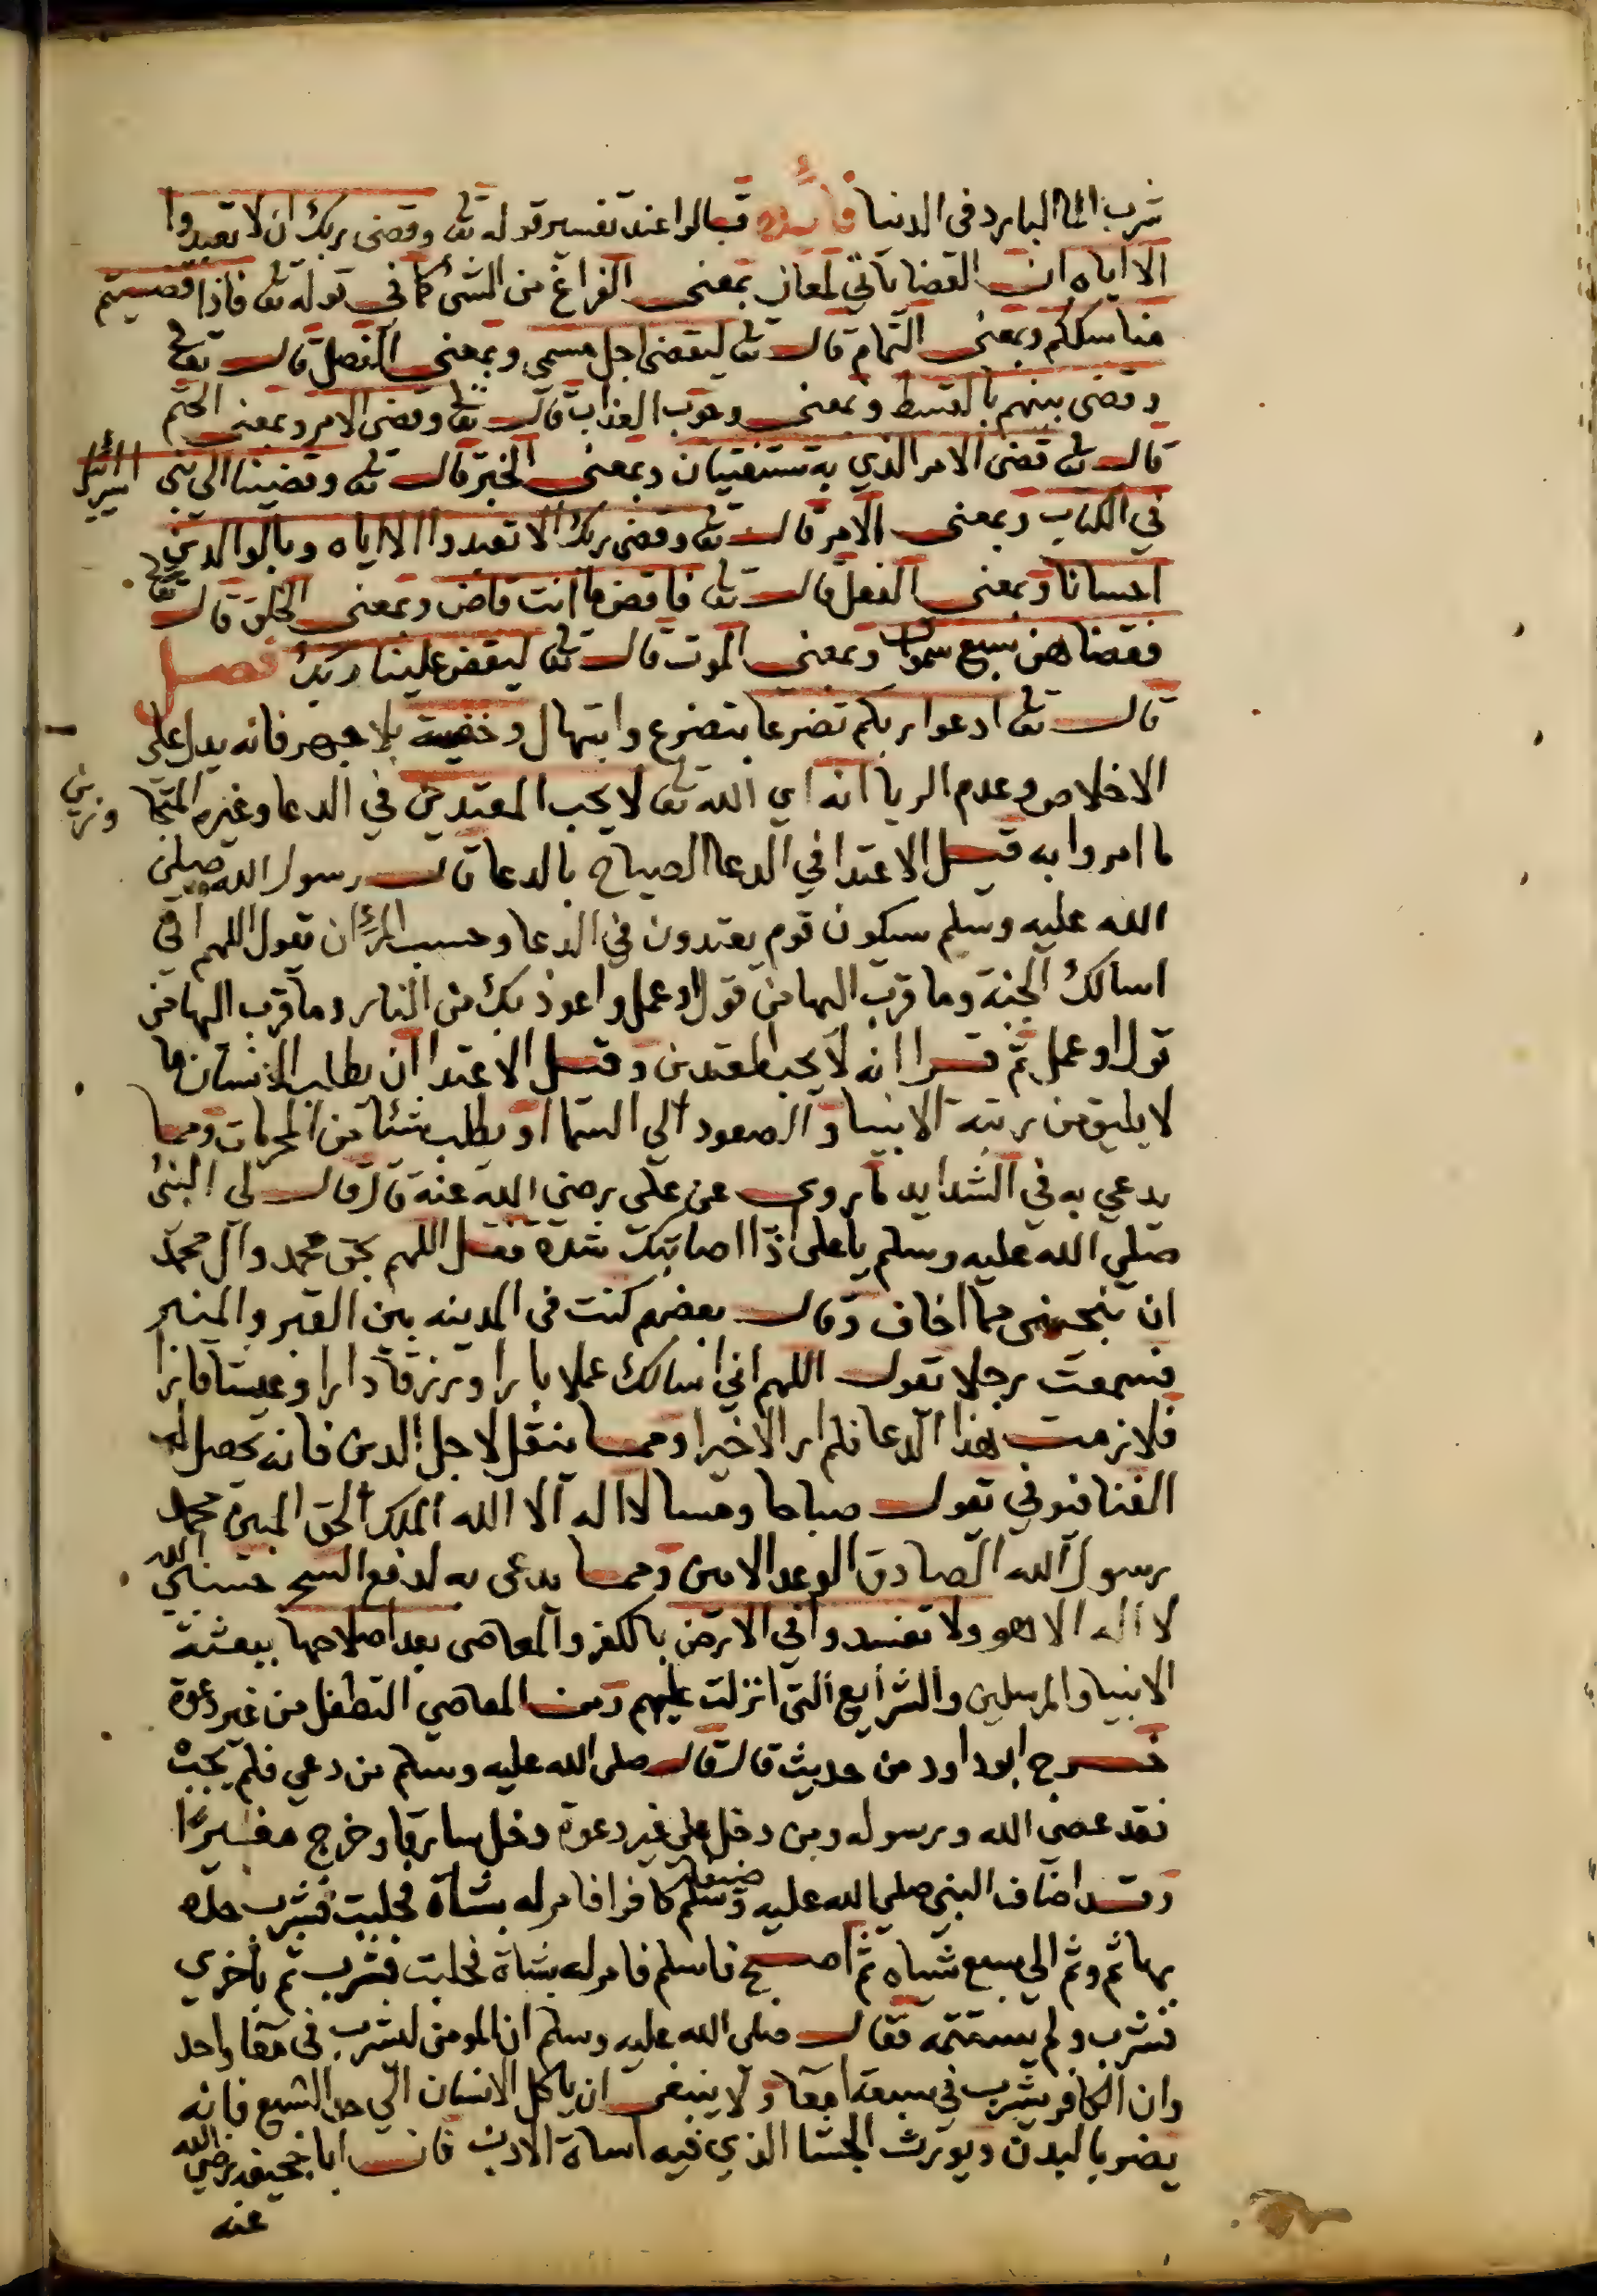 شرب الما البارد في الدنيا فائدة قالوا عند تفسير قوله تعا وقضى ربك ان لا تعبدوا
الا اياه ان القضا ياتي لمعان بمعنى الفراغ من الشئ كما في قوله تعا فاذا قضيتم
مناسككم وبمعنى التمام قال تعا ليقضى اجل مسمى وبمعنى الفصل قال تعا
وقضى بينهم بالقسط وبمعنى وجوب العذاب قال تعا وقضى الامر وبمعنى الحتم
قال تعا قضى الامر الذي به تستفتيان وبمعنى الخبر قال تعا وقضينا الى بني اسرائيل
في الكتاب وبمعنى الامر قال تعا وقضى ربك الا تعبدوا الا اياه وبالوالدين
احسانا وبمعنى الفعل قال تعا فاقض ما انت قاض وبمعنى الخلق قال تعا
فقضاهن سبع سموات وبمعنى الموت قال تعا ليقض علينا ربك فصل
قال تعا ادعوا ربكم تضرعا بتضرع وابتهال وخفية بلا جهر فانه يدل على
الاخلاص وعدم الريا انه اي الله تعا لا يحب المعتدين في الدعا وغيره المتجاوزين
ما امروا به قيل الاعتدا في الدعا الصياح بالدعا قال رسول الله صلى
الله عليه وسلم سيكون قوم يعتدون في الدعا وحسب المرئ ان تقول اللهم اني
اسالك الجنة وما قرب اليها من قول او عمل واعوذ بك من النار وما قرب اليها من
قول او عمل ثم قرا انه لا يحب المعتدين وقيل الاعتدا ان يطلب الانسان ما
لا يليق من رتبة الانبيا والصعود الى السما او يطلب شئا من المحرمات ومما
يدعى به في الشدايد ما روى عن على رضى الله عنه قال قال لى النبى
صلى الله عليه وسلم يا على اذا اصابتك شدة فقل اللهم بحق محمد وآل محمد
ان تنجينى مما اخاف وقال بعضهم كنت في المدينه بين القبر والمنبر
فسمعت رجلا تقول اللهم اني اسالك عملا بارا ورزقا دارا وعيشا قارا
فلازمت هذا الدعا فلم ار الا خيرا ومما ينقل لاجل الدين فانه تحصل له
الغنا فنوفي تقول صباحا ومسا لا اله الا الله الملك الحق المبين محمد
رسول الله الصادق الوعد الامين ومما يدعى به لدفع السحر حسبى الله
لا اله الا هو ولا تفسدوا في الارض بالكفر والمعاصى بعد اصلاحها ببعثة
الانبيا والمرسلين والشرايع التى انزلت عليهم ومن المعاصي التطفل من غير دعوة
خرج ابو داود من حديث قال قال صلى الله عليه وسلم من دعي فلم يجب
فقد عصى الله ورسوله ومن دخل على غير دعوة دخل سارقا وخرج مغيرًا
وقد اضاف النبى صلى الله عليه وسلم ضيفا كافرا فامر له بشاة فحلبت فشرب حلابها
بها ثم وثم الى سبع شياه ثم اصبح فاسلم فامر له بشاة فحلبت فشرب ثم باخرى
فشرب ولم يستتمه فقال صلى الله عليه وسلم ان المومن ليشرب في معا واحد
وان الكافر يشرب في سبعة امعا ولا ينبغى ان ياكل الانسان الى حد الشبع فانه
يضر بالبدن ويورث الجشا الذي فيه اساة الادب فان ابا جحيفه رضى الله
عنه